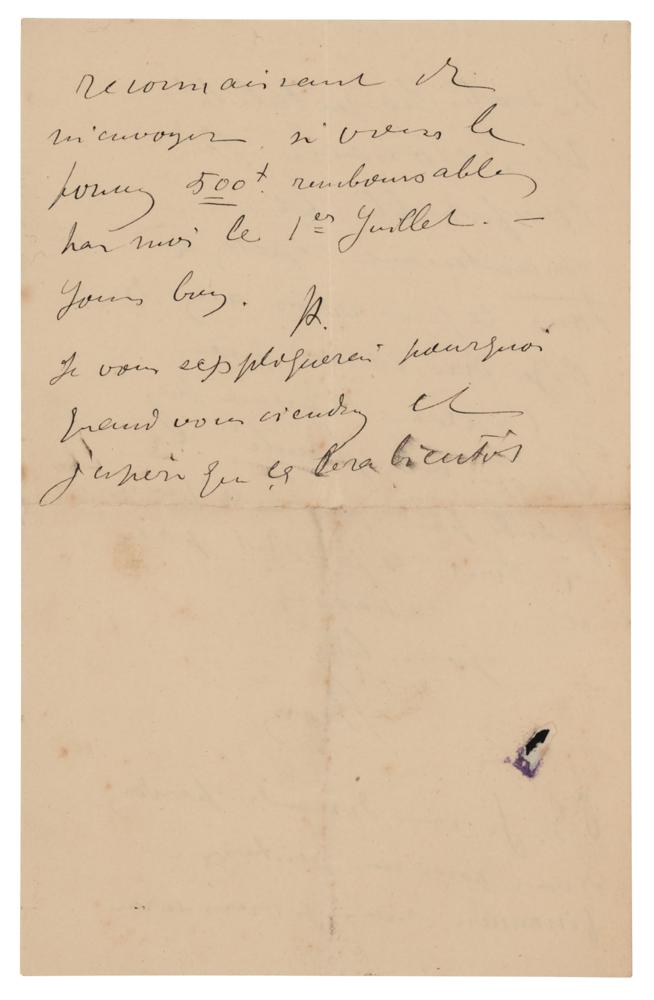 reconnaissant de
m'envoyer si vous le
pouvez 500f. remboursables
par moi le 1er Juillet. —
Yours boy.
Je vous expliquerai pourquoi
quand vous viendrez et
j'espère que ça sera bientôt